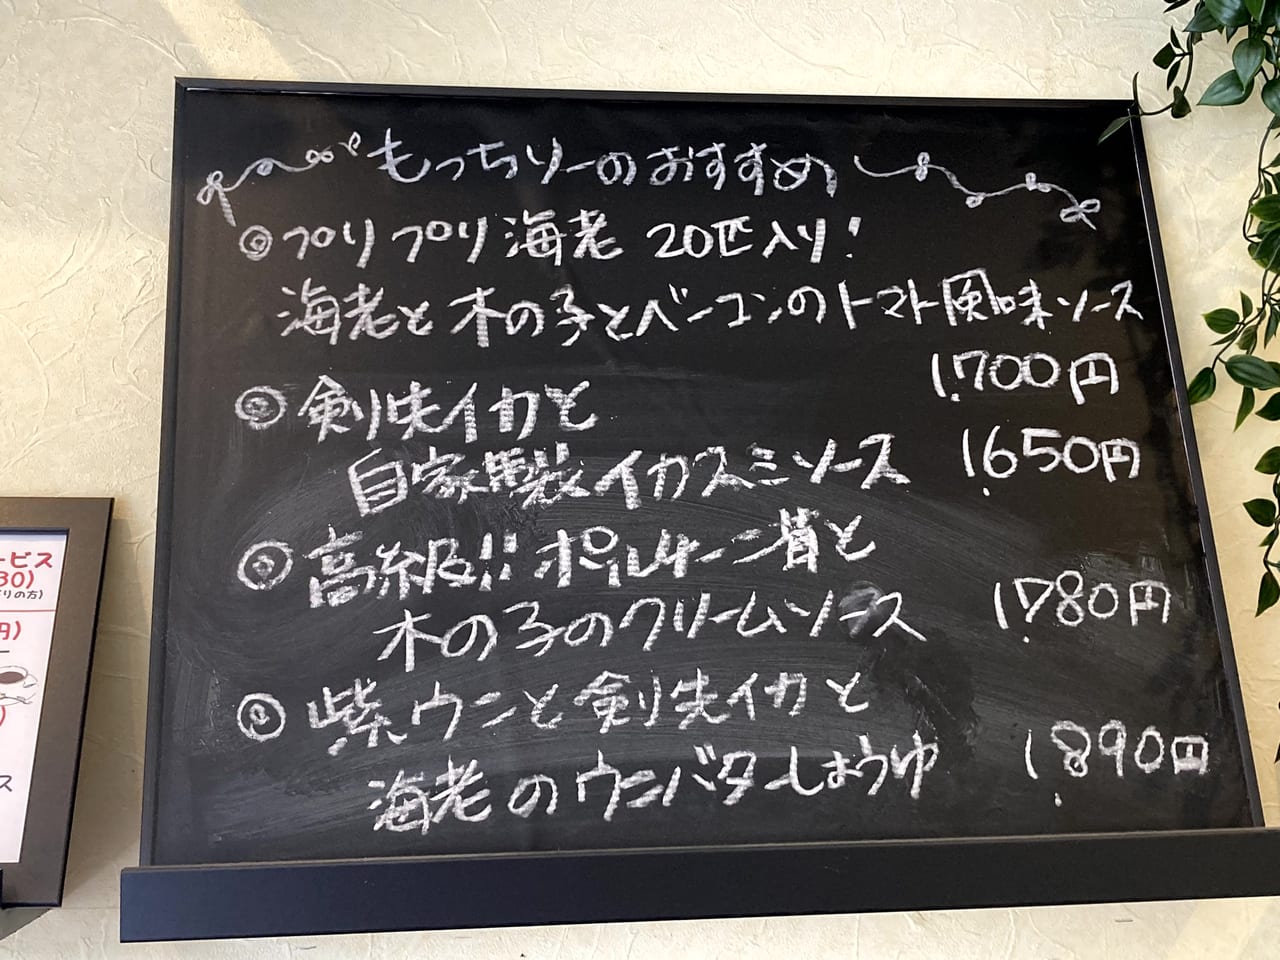 もっちりーのおすすめ
◎プリプリ海老 20匹入り!
海老と木の子とベーコンのトマト風味ソース
1.700円
◎剣先イカと
自家製イカスミソース 1.650円
◎高級!!ポルチーニ茸と
木の子のクリームソース 1.780円
◎紫ウニと剣先イカと
海老のウニバターしょうゆ 1.890円
ービス
30)
りの方)
円)
ス